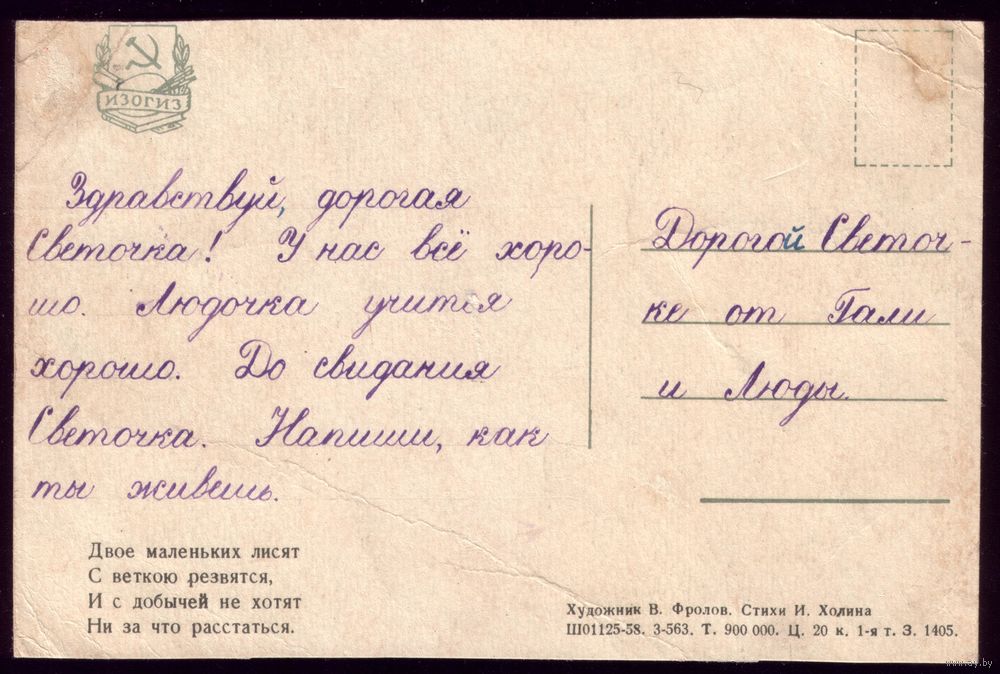 ИЗОГИЗ
Здравствуй, дорогая
Светочка! У нас всё хоро-
шо. Людочка учится
хорошо. До свидания
Светочка. Напиши, как
ты живешь.
Дорогой Светоч-
ке от Гали
и Люды.
Двое маленьких лисят
С веткою резвятся,
И с добычей не хотят
Ни за что расстаться.
Художник В. Фролов. Стихи И. Холина
Ш01125-58. 3-563. Т. 900 000. Ц. 20 к. 1-я т. З. 1405.
www.ay.by